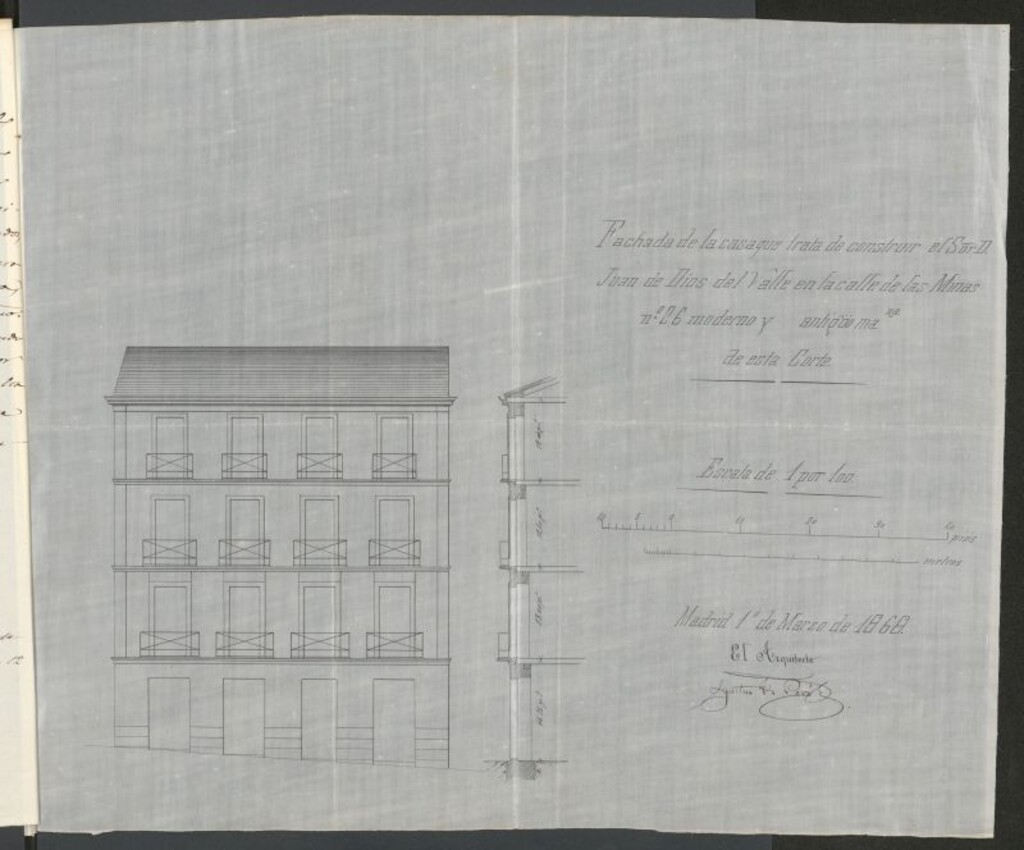 Fachada de la casa que trata de construir el Sor. D.
Juan de Dios del Valle en la calle de las Minas
nº 26 moderno y antigüo mª
de esta Corte.
Escala de 1 por 100
10 5 0 10 20 30 40 piés
metros
Madrid 1º de Marzo de 1868.
El Arquitecto